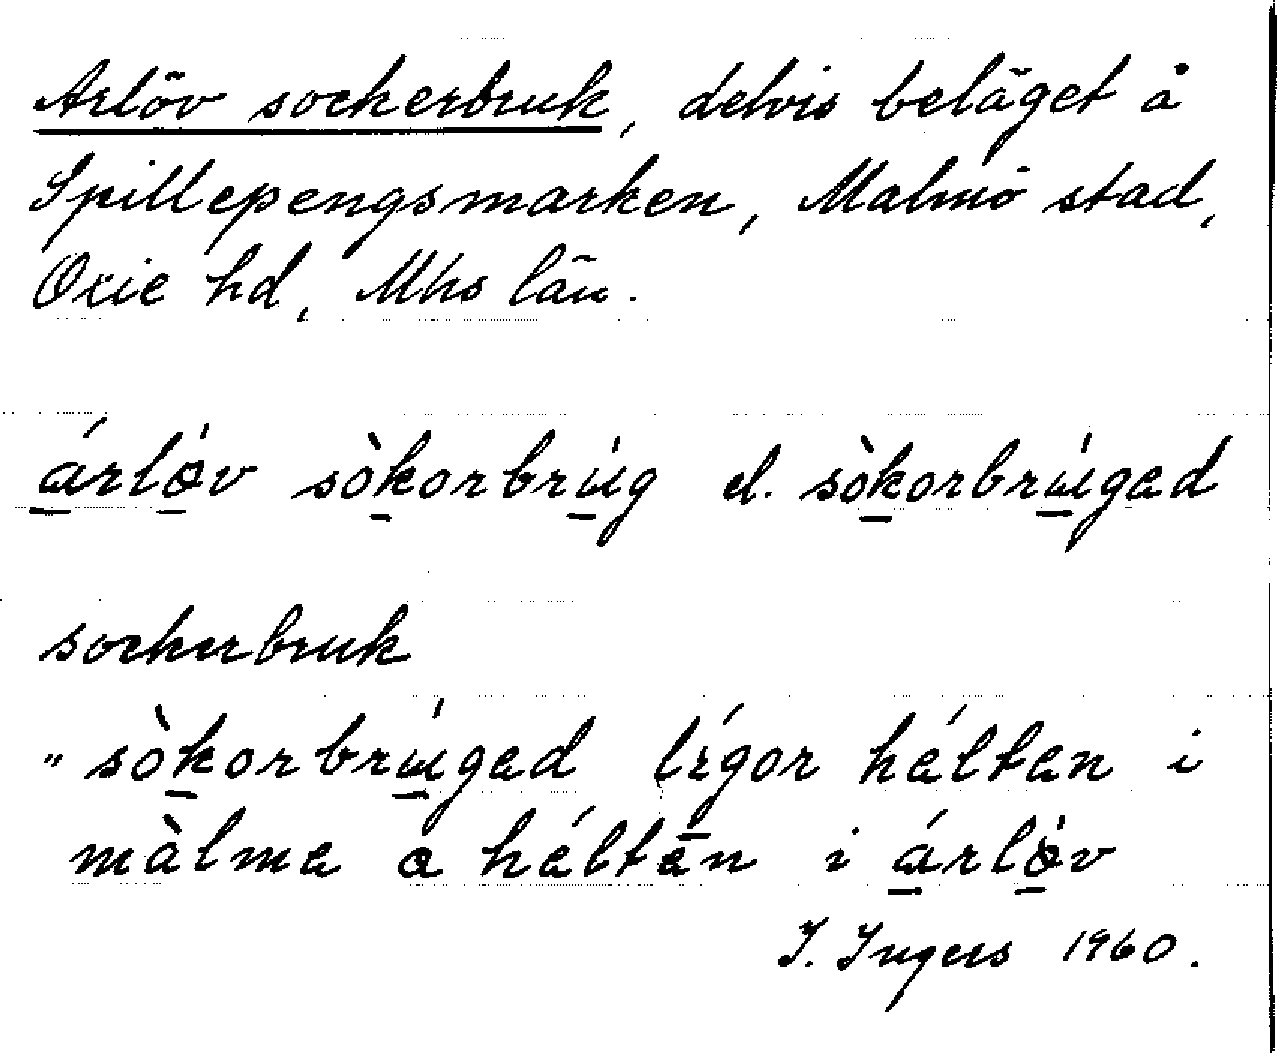 Arlöv sockerbruk, delvis beläget å
Spillepengsmarken, Malmö stad,
Oxie hd, Mhs län.
árlöv sòkorbrúg el. sòkorbrúged
sockerbruk
" sòkorbrúged lígor hélten i
màlmə o hélten i árlöv
I. Ingers 1960.